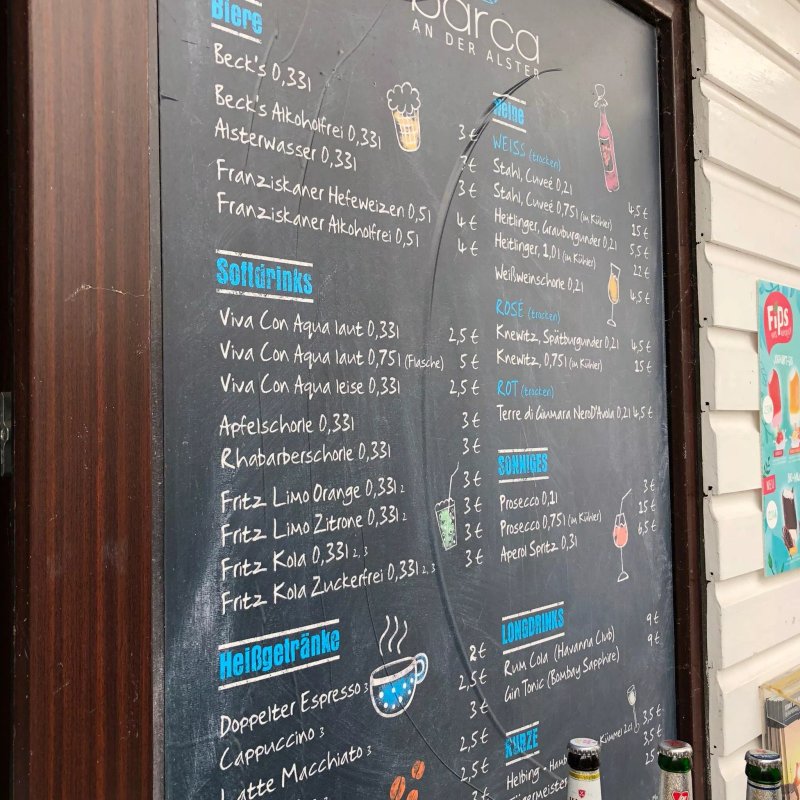 barca
AN DER ALSTER
Biere
Beck's 0,33l
Beck's Alkoholfrei 0,33l 3 €
Alsterwasser 0,33l 3 €
3 €
Franziskaner Hefeweizen 0,5l 4 €
Franziskaner Alkoholfrei 0,5l 4 €
Softdrinks
Viva Con Aqua laut 0,33l 2,5 €
Viva Con Aqua laut 0,75l (Flasche) 5 €
Viva Con Aqua leise 0,33l 2,5 €
Apfelschorle 0,33l 3 €
Rhabarberschorle 0,33l 3 €
Fritz Limo Orange 0,33l 2 3 €
Fritz Limo Zitrone 0,33l 2 3 €
Fritz Kola 0,33l 2, 3 3 €
Fritz Kola Zuckerfrei 0,33l 2, 3 3 €
Heißgetränke
Doppelter Espresso 3 2 €
Cappuccino 3 2,5 €
Latte Macchiato 3 3 €
2,5 €
2,5 €
2 €
Weine
WEISS (trocken)
Stahl, Cuveé 0,2l 4,5 €
Stahl, Cuveé 0,75l (im Kühler) 15 €
Heitlinger, Grauburgunder 0,2l 5,5 €
Heitlinger, 1,0l (im Kühler) 22 €
Weißweinschorle 0,2l 4,5 €
ROSÉ (trocken)
Knewitz, Spätburgunder 0,2l 4,5 €
Knewitz, 0,75l (im Kühler) 15 €
ROT (trocken)
Terre di Giumara Nero D'Avola 0,2l 4,5 €
SONNIGES
Prosecco 0,1l 3 €
Prosecco 0,75l (im Kühler) 15 €
Aperol Spritz 0,3l 6,5 €
LONGDRINKS
Rum Cola (Havanna Club) 9 €
Gin Tonic (Bombay Sapphire) 9 €
KURZE
Helbing - Kümmel 2cl 3,5 €
Jägermeister 3,5 €
Fips
NEU